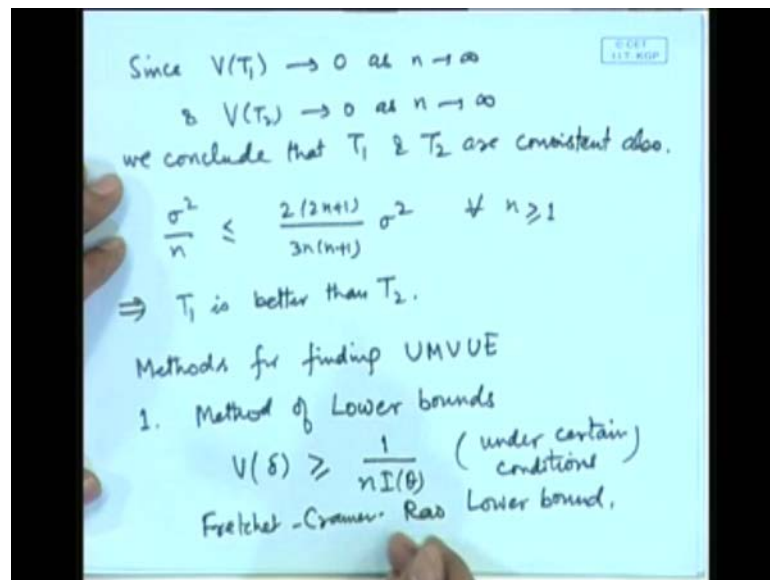 © CET
I.I.T. KGP
Since V(T₁) → 0 as n → ∞
& V(T₂) → 0 as n → ∞
we conclude that T₁ & T₂ are consistent also.
σ²/n ≤ 2(2n+1)/3n(n+1) σ² ∀ n ≥ 1
⇒ T₁ is better than T₂.
Methods for finding UMVUE
1. Method of Lower bounds
V(δ) ≥ 1/nI(θ) (under certain conditions)
Fretchet-Cramer-Rao Lower bound.